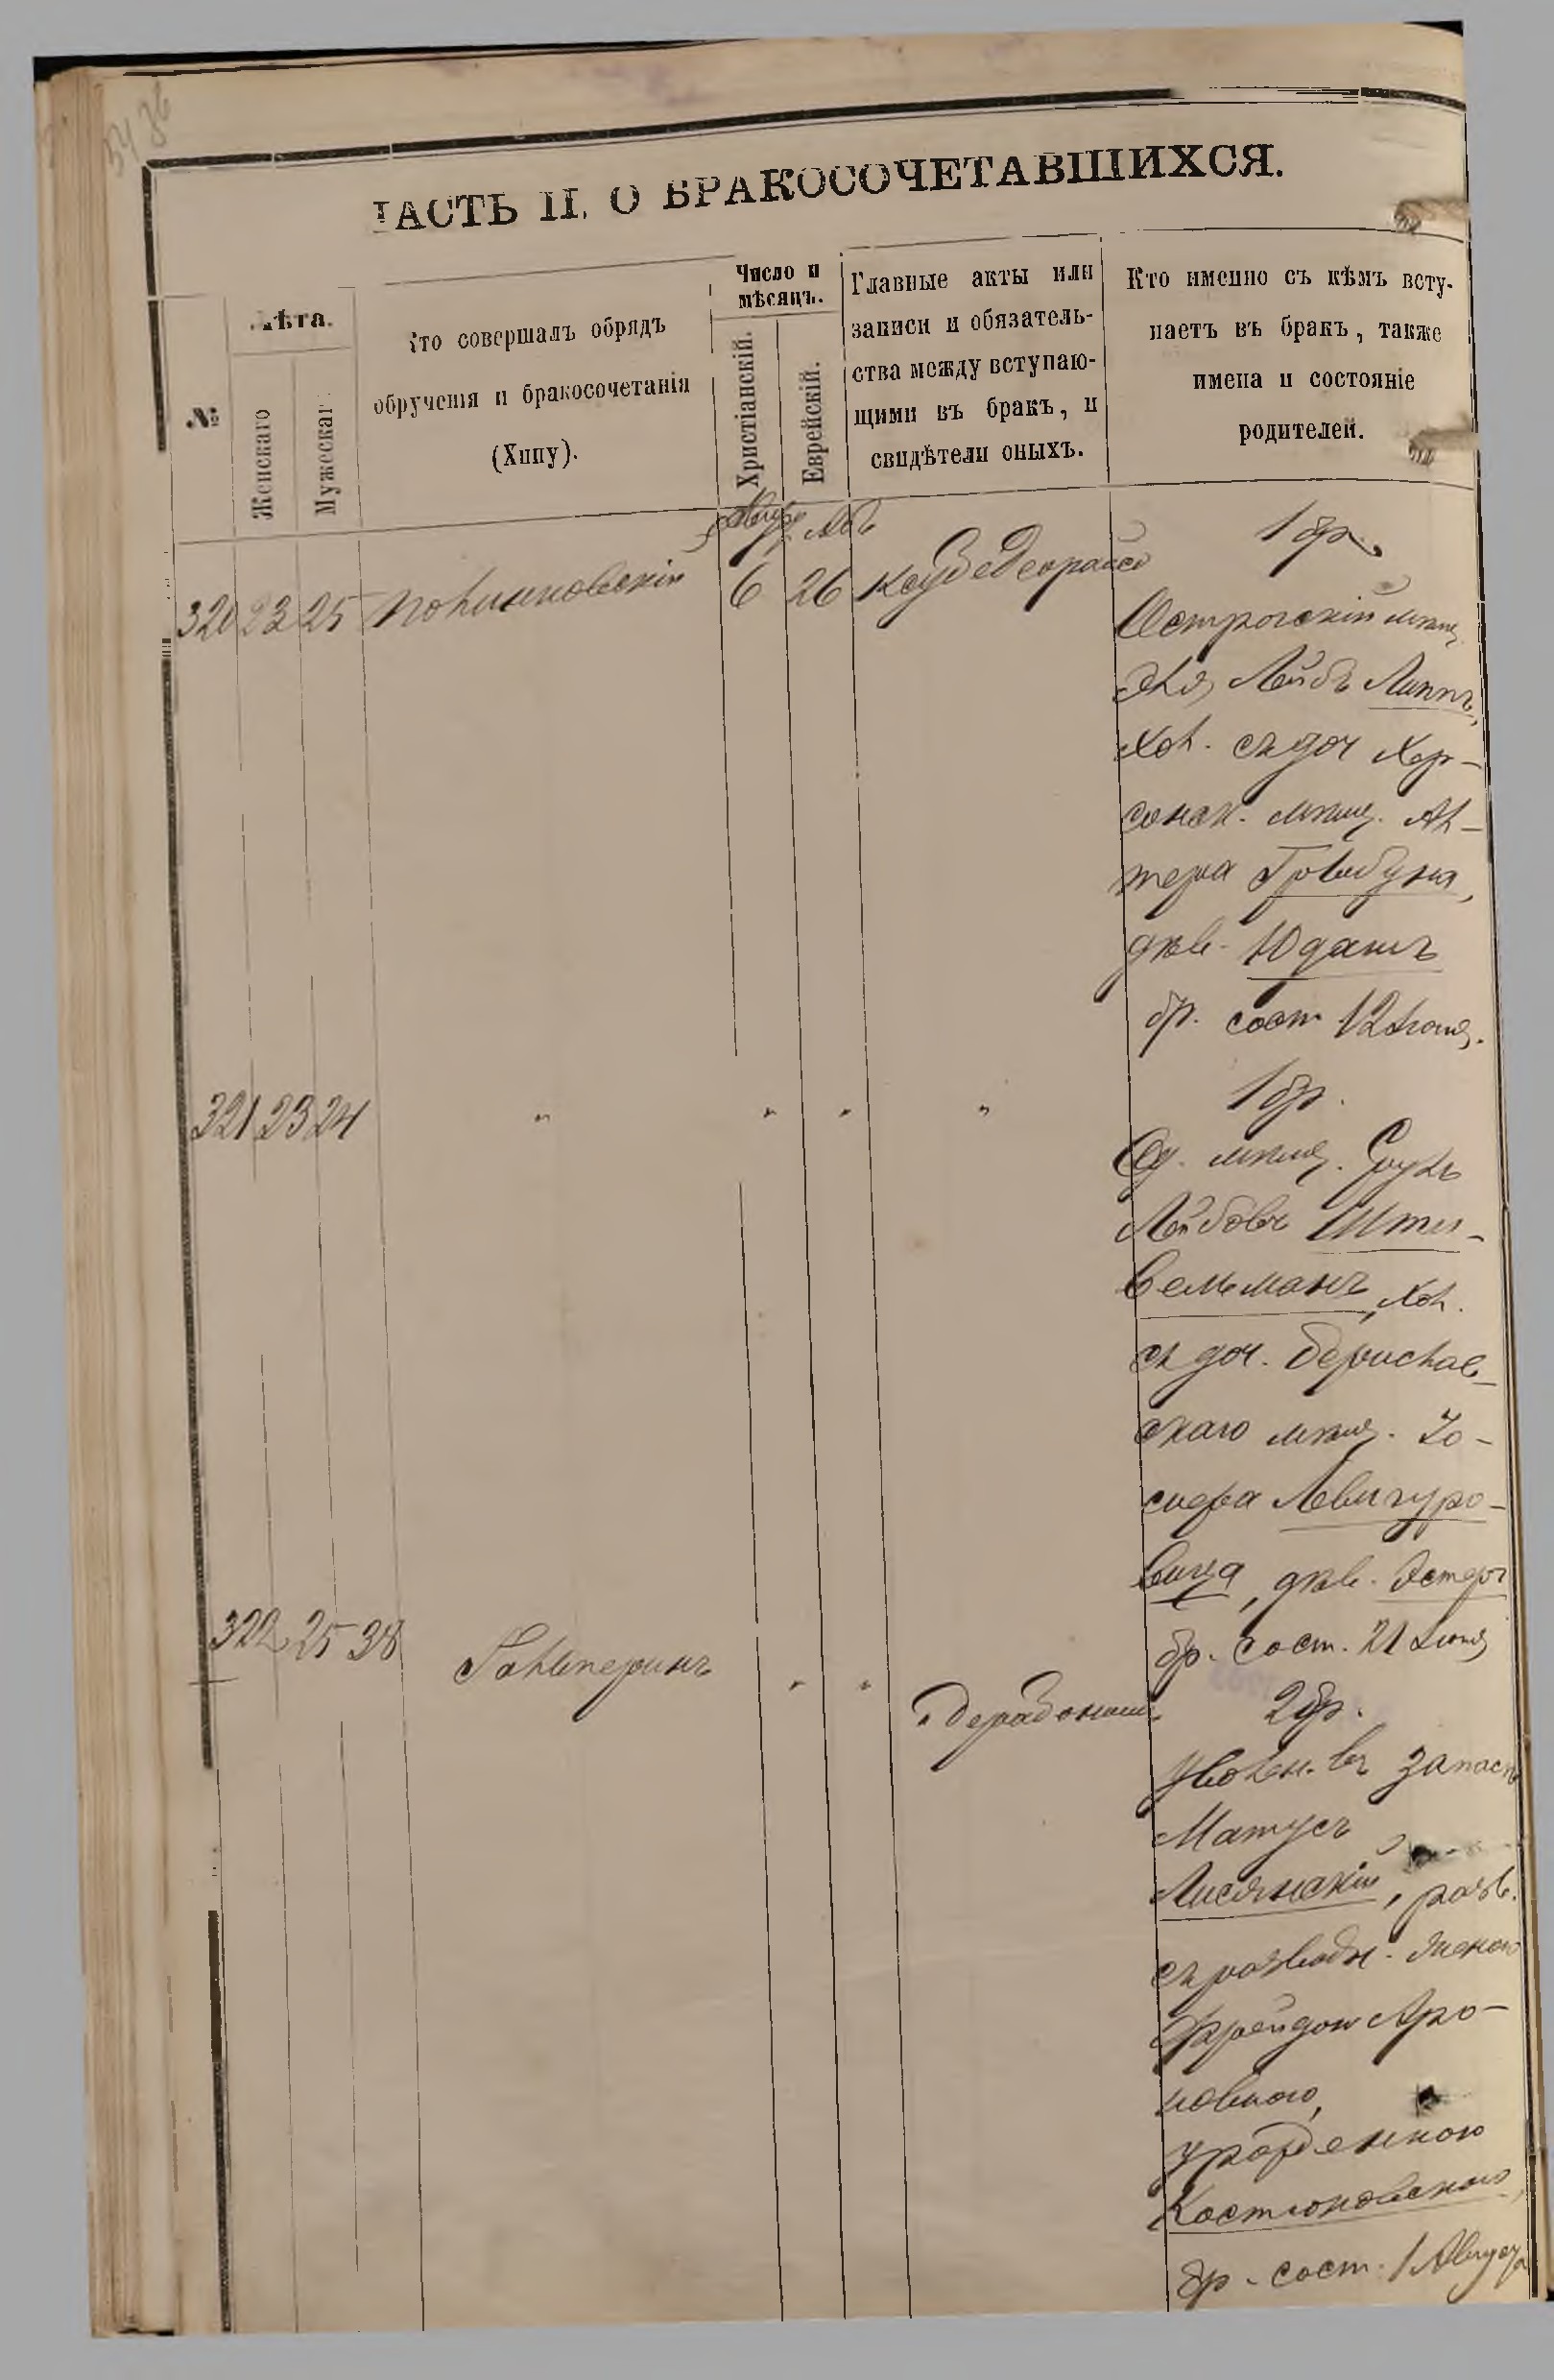 ЧАСТЬ II. О БРАКОСОЧЕТАВШИХСЯ.
№
Лѣта.
Женскаго
Мужескаго
Кто совершалъ обрядъ
обрученія и бракосочетанія
(Хипу).
Число и
мѣсяцъ.
Христіанскій.
Еврейскій.
Главные акты или
записи и обязатель-
ства между вступаю-
щими въ бракъ, и
свидѣтели оныхъ.
Кто именно съ кѣмъ всту-
паетъ въ бракъ, также
имена и состояніе
родителей.
320 23 25 Полинковскій 6 26
1 бр.
Острогскій мѣщ.
Лейбъ Липпъ,
хол. съ доч Хер-
сонск. мѣщ. Ал-
тера
дѣв.
бр. сост 12 Іюня.
321 23 24 " " " "
1 бр.
Од. мѣщ. Сруль
Лейбовъ Ште-
сельманъ, хол.
съ доч. Берислав-
скаго мѣщ. Іо-
сифа Левитуро-
вица, дѣв. Эстеръ
бр. сост. 21 Іюня
322 25 38 Гальперинъ " "
2 бр.
Уволен. въ запасъ
Матусъ
Лисянскій, разв.
съ разводн. женою
Фрейдою Аро-
новною,
урожденною
Костюковскою,
бр. сост. 1 Августа